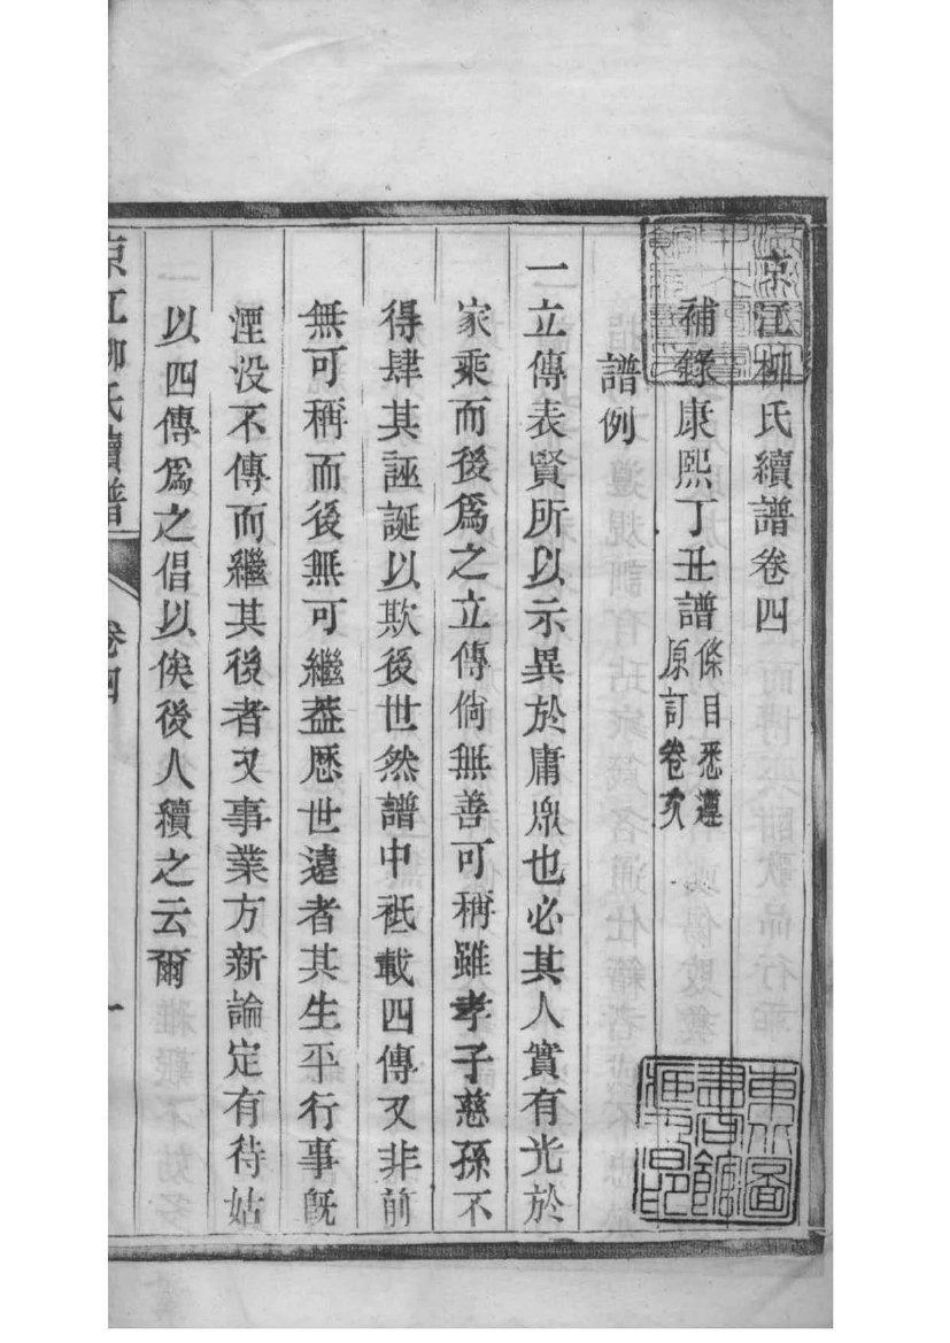 京江柳氏續譜卷四
補錄康熙丁丑譜條目悉遵
原訂卷次
譜例
一立傳表賢所以示異於庸衆也必其人實有光於
家乘而後爲之立傳倘無善可稱雖孝子慈孫不
得肆其誣誕以欺後世然譜中祗載四傳又非前
無可稱而後無可繼葢歷世遠者其生平行事旣
湮没不傳而繼其後者又事業方新論定有待姑
以四傳爲之倡以俟後人續之云爾
京江柳氏續譜
卷四
一